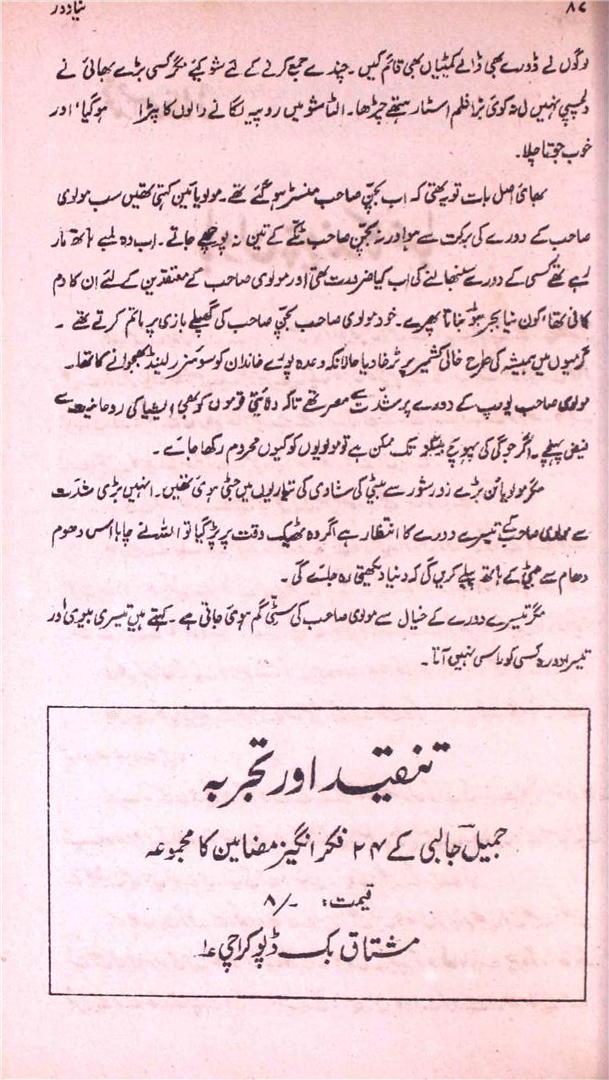 نیا دور ۸۶
لوگوں نے ڈورے بھی ڈالے کمیٹیاں بھی قائم کیں۔ چندے جمع کرنے کے لئے شو کیے مگر کسی بڑے بھائی نے
دلچسپی نہیں لی نہ کوئی بڑا فلم اسٹار ہتھے چڑھا۔ الٹا شو میں روپیہ لگانے والوں کا پٹرا ہو گیا، اور
خوب جوتا چلا۔
بھائی اصل بات تو یہ تھی کہ اب بچّن صاحب منسٹر ہو گئے تھے۔ مولویائین کہتی تھیں سب مولوی
صاحب کے دورے کی برکت سے ہوا ورنہ بچّن صاحب ٹکے کے تین نہ پوچھے جاتے۔ اب وہ لمبے ہاتھ مار
رہے تھے کسی کے دورے سنبھالنے کی اب کیا ضرورت تھی اور مولوی صاحب کے معتقدین کے لئے ان کا دم
کافی تھا، کون نیا بحر بناتا پھرے۔ خود مولوی صاحب بچّن صاحب کی گھپلے بازی پر ماتم کرتے تھے۔
گرمیوں میں ہمیشہ کی طرح خالی کشمیر پر ٹرخا دیا حالانکہ وعدہ پورے خاندان کو سوئیزرلینڈ بھجوانے کا تھا۔
مولوی صاحب یورپ کے دورے پر شدّت سے مصر تھے تاکہ وہ نئی قوموں کو بھی ایشیا کی روحانیت سے
فیض پہنچے۔ اگر جوگی کی پہونچ بیٹلز تک ممکن ہے تو مولویوں کو کیوں محروم رکھا جائے۔
مگر مولویائن بڑے زور شور سے بیٹی کی شادی کی تیاریوں میں جٹی ہوئی تھیں۔ انہیں بڑی شدّت
سے مولوی صاحب کے تیسرے دورے کا انتظار ہے اگر وہ ٹھیک وقت پر پڑ گیا تو اللہ نے چاہا اس دھوم
دھام سے بیٹی کے ہاتھ پیلے کریں گی کہ دنیا دیکھتی رہ جائے گی۔
مگر تیسرے دورے کے خیال سے مولوی صاحب کی سٹّی گم ہوئی جاتی ہے۔ کہتے ہیں تیسری بیوی اور
تیسرا دورہ کسی کو راسی نہیں آتا۔
تنقید اور تجربہ
جمیل جالبی کے ۲۴ فکر انگیز مضامین کا مجموعہ
قیمت: ۸/-
مشتاق بک ڈپو کراچی ۱